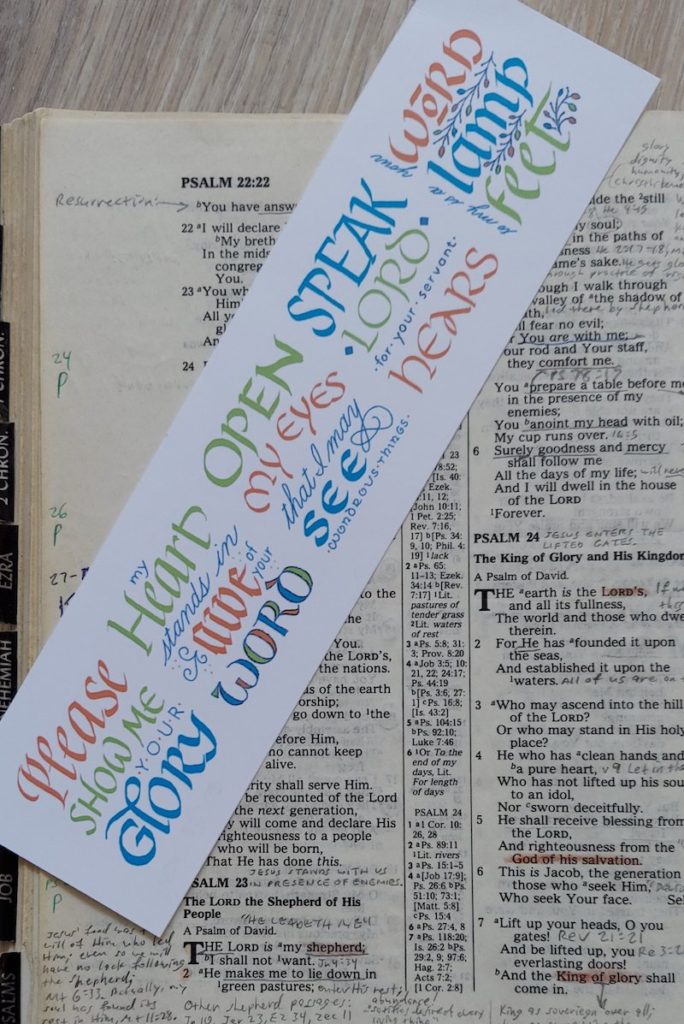 Please
SHOW ME
YOUR
GLORY
my
Heart
stands in
awe of
your
WORD
OPEN
MY EYES
that I may
SEE
·wondrous·things·
SPEAK
·LORD·
·for·your·servant·
HEARS
your
WORD
is a
lamp
to my
feet
PSALM 22:22
Resurrection:
bYou have answ
22 aI will declare
bMy breth
In the mids
congreg
You.
23 aYou wh
Him
All y
gl
An
24
24
P
26
P
27
to the
You.
the LORD'S,
the nations.
s of the earth
orship;
go down to 1the
before Him,
ho cannot keep
alive.
erity shall serve Him.
be recounted of the Lord
the next generation,
y will come and declare His
righteousness to a people
who will be born,
That He has done this.
JESUS STANDS WITH US
IN PRESENCE OF ENEMIES.
PSALM 23
The LORD the Shepherd of His
People
"HE LEADETH ME"
A Psalm of David.
THE LORD is amy shepherd;
bI shall not 1want.
2 aHe makes me to lie down in
1green pastures;
Other shepherd passages:
CHRON.
2 CHRON.
EZRA
NEHEMIAH
JOB
PSALMS
23
78:52;
[Is. 40:
Ezek.
11, 12;
John 10:11;
1 Pet. 2:25;
Rev. 7:16,
17] b[Ps. 34:
9, 10; Phil. 4:
19] 1lack
2 aPs. 65:
11–13; Ezek.
34:14 b[Rev.
7:17] 1Lit.
pastures of
tender grass
2Lit. waters
of rest
3 aPs. 5:8; 31:
3; Prov. 8:20
4 aJob 3:5; 10:
21, 22; 24:17;
Ps. 44:19
b[Ps. 3:6; 27:
1] cPs. 16:8;
[Is. 43:2]
5 aPs. 104:15
bPs. 92:10;
Luke 7:46
6 1Or To the
end of my
days, Lit.
For length
of days
PSALM 24
1 a1 Cor. 10:
26, 28
2 aPs. 89:11
1Lit. rivers
3 aPs. 15:1–5
4 a[Job 17:9];
Ps. 26:6 bPs.
51:10; 73:1;
[Matt. 5:8]
cPs. 15:4
6 aPs. 27:4, 8
7 aPs. 118:20;
Is. 26:2 bPs.
29:2, 9; 97:6;
Hag. 2:7;
Acts 7:2;
[1 Cor. 2:8]
glory
dignity
humanity,
ide the 2still
y soul;
in the paths of
sness
me's sake.
ough I walk through
valley of athe shadow of
th,
ll fear no evil;
r You are with me;
our rod and Your staff,
they comfort me.
You aprepare a table before me
in the presence of my
enemies;
You banoint my head with oil;
My cup runs over.
6 Surely goodness and mercy
shall follow me
All the days of my life;
And I will dwell in the house
of the LORD
1Forever.
PSALM 24 JESUS ENTERS THE
LIFTED GATES.
The King of Glory and His Kingdo
A Psalm of David.
THE aearth is the LORD'S,
and all its fullness,
The world and those who dwe
therein.
2 For He has afounded it upon
the seas,
And established it upon the
1waters. All of us are on
3 aWho may ascend into the hill
of the LORD?
Or who may stand in His holy
place?
4 He who has aclean hands and
ba pure heart,
Who has not lifted up his sou
to an idol,
Nor csworn deceitfully.
5 He shall receive blessing from
the LORD,
And righteousness from the
God of his salvation.
6 This is Jacob, the generation
those who aseek Him,
Who seek Your face. Se
7 aLift up your heads, O you
gates! Rev 21:21
And be lifted up, you
everlasting doors!
bAnd the King of glory shall
come in.
King as sovereign over all;